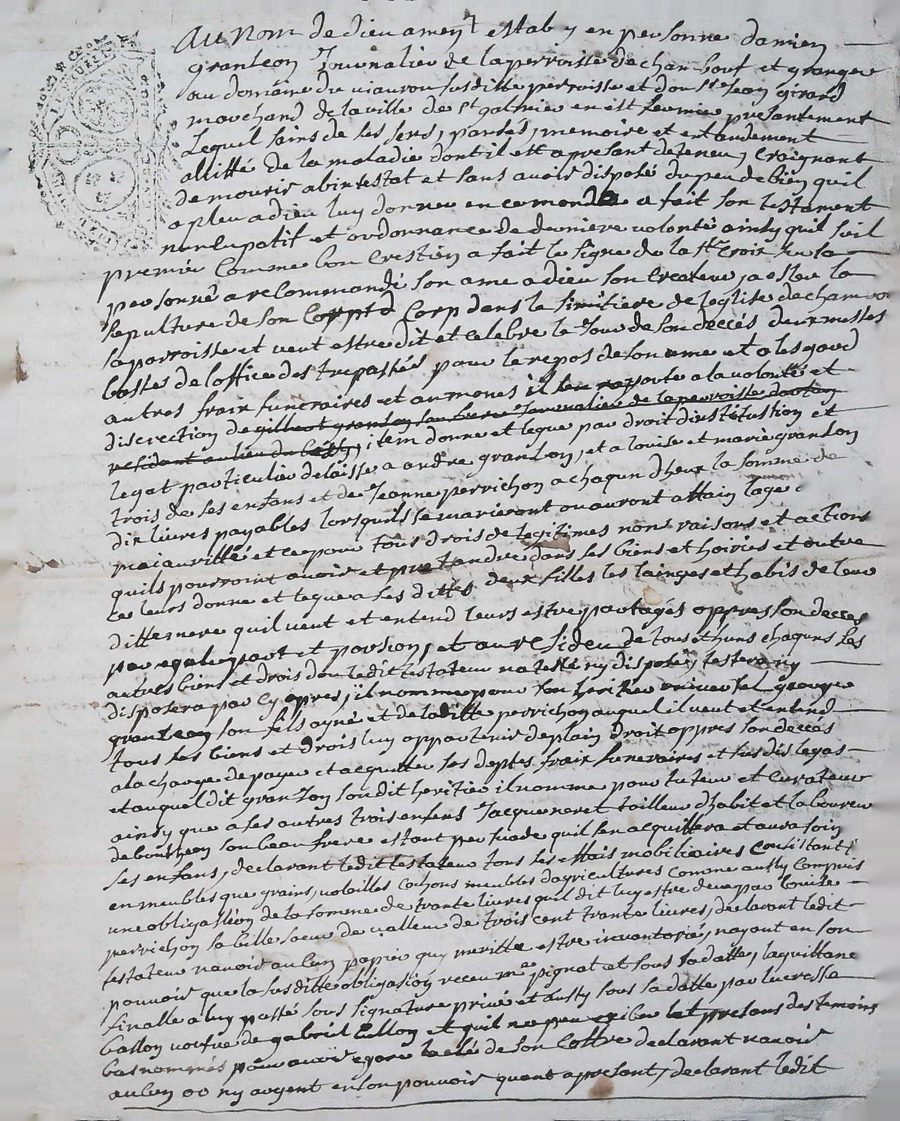 Au Nom de dieu amen, estably en personne damien
granleon Journalier de la perroisse de chambout et granger
au domaine du viauron susditte perroisse et don sr Jean girard
marchand de la ville de st galmie en est fermie presantement
Lequel sains de ses sens, pansés, memoire et entandement
allitté de la maladie dont il est apresant deteneu, Craignant
de mourir abintestat et sans avoir disposé du peu de bien quil
a pleu a dieu luy donner en ce monde a fait son testament
noncupatif et ordonnance de derniere volonté ainsy quil suit
premie Comme bon Crestien a fait le signe de la ste Croix sur la
personne a recommandé son ame a dieu son Createur, a esleu la
sepulture de son Corp dans le simitiere de leglise de cham
sa perroisse et veut estre dit et celebre le Jour de son deccés deux messes
basses de loffice des trepassés pour le repos de son ame et a lesgard
autres fraix funeraires et aumones il sen rapporte a la volonté et
discretion de gilbert granlon son frere Journalier de la perroisse
residant au lieu du, item donne et legue par droit dinstitustion et
legat particulie delaisse a andré granlon, et a louise et marie granlon
trois de ses enfans et de Jeanne perrichon a chaqun dheux la somme de
dix livres payables lorsquils se marieront ou auront attain lage
maiauritté et ce pour tous drois de legitimes noms raisons et actions
quils pourroint avoir et pretandre dans ses biens et hoiries et outre
ce leurs donne et legue a ses dittes deux filles les lainges et habis de leur
ditte mere quil veut et entend leurs estre partagés appres son decces
par egale part et portion, et au resideu de tous et huns chaquns ses
autres biens et drois dont ledit testateur na testé ny disposé, testera ny
disposera par cy appres, il nomme pour son heritie universel george
granleon son fils ayné et de laditte perrichon auquel il veut et entend
tous ses biens et drois luy appartenir de plain droit appres son deccés
a la charge de payer et acquitter ses deptes, fraix funeraires et susdis legas
et auquel dit granlon son dit heritie il nomme pour tuteur et Curateur
ainsy que a ses autres trois enfens Jacque neret tailleur dhabit et laboureur
de boutheon son beau frere estant persuade quil sen acquittera et aura soin
ses enfans, declarant ledit testateur tous ses effais mobiliaires Consistant
en meubles que grains, volailles Cochons meubles dagricultures Comme aussy Compris
une obligassion de la somme de trante livres quil dit luy estre deue par louise
perrichon sa belle soeur de valleur de trois cent trante livres, declarant ledit
testateur navoir aulcun papier quy meritte estre invantorié, nayant en son
pouvoir que la susditte obligasion receu me pignat et sous sa datte, laquittance
finalle a luy passé sous signature privé et aussy sous sa datte par lucresse
ballon veufve de gabriel et quil ne peu exiber et presans des temoins
bas nommés pour avoir egaré la clé de son Coffre declarant navoir
aulcun or ny argent en son pouvoir quant apresant, declarant ledit